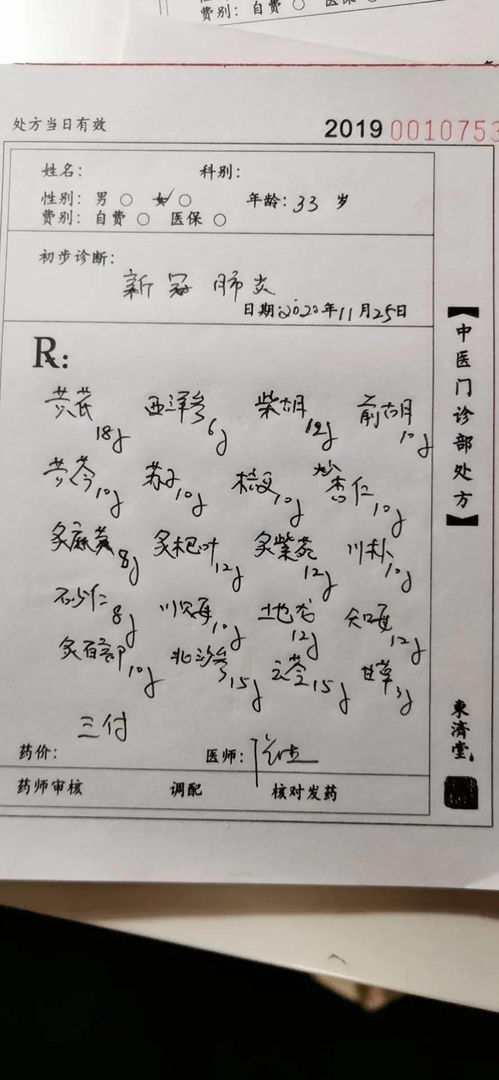 费别：自费 ○ 医保 ○
处方当日有效
2019 0010753
姓名： 科别：
性别：男 ○ 女 ○ 年龄：33 岁
费别：自费 ○ 医保 ○
初步诊断：
新冠肺炎
日期：2020年11月25日
R：
黄芪18g 西洋参6g 柴胡12g 前胡10g
黄芩10g 苏子10g 桔更10g 炒杏仁10g
炙麻黄8g 炙杷叶12g 炙紫菀12g 川朴10g
砂仁8g 川贝母10g 土地龙12g 知母12g
炙百部10g 北沙参15g 云苓15g 甘草3g
三付
药价： 医师：
药师审核 调配 核对发药
【中医门诊部处方】
東济堂